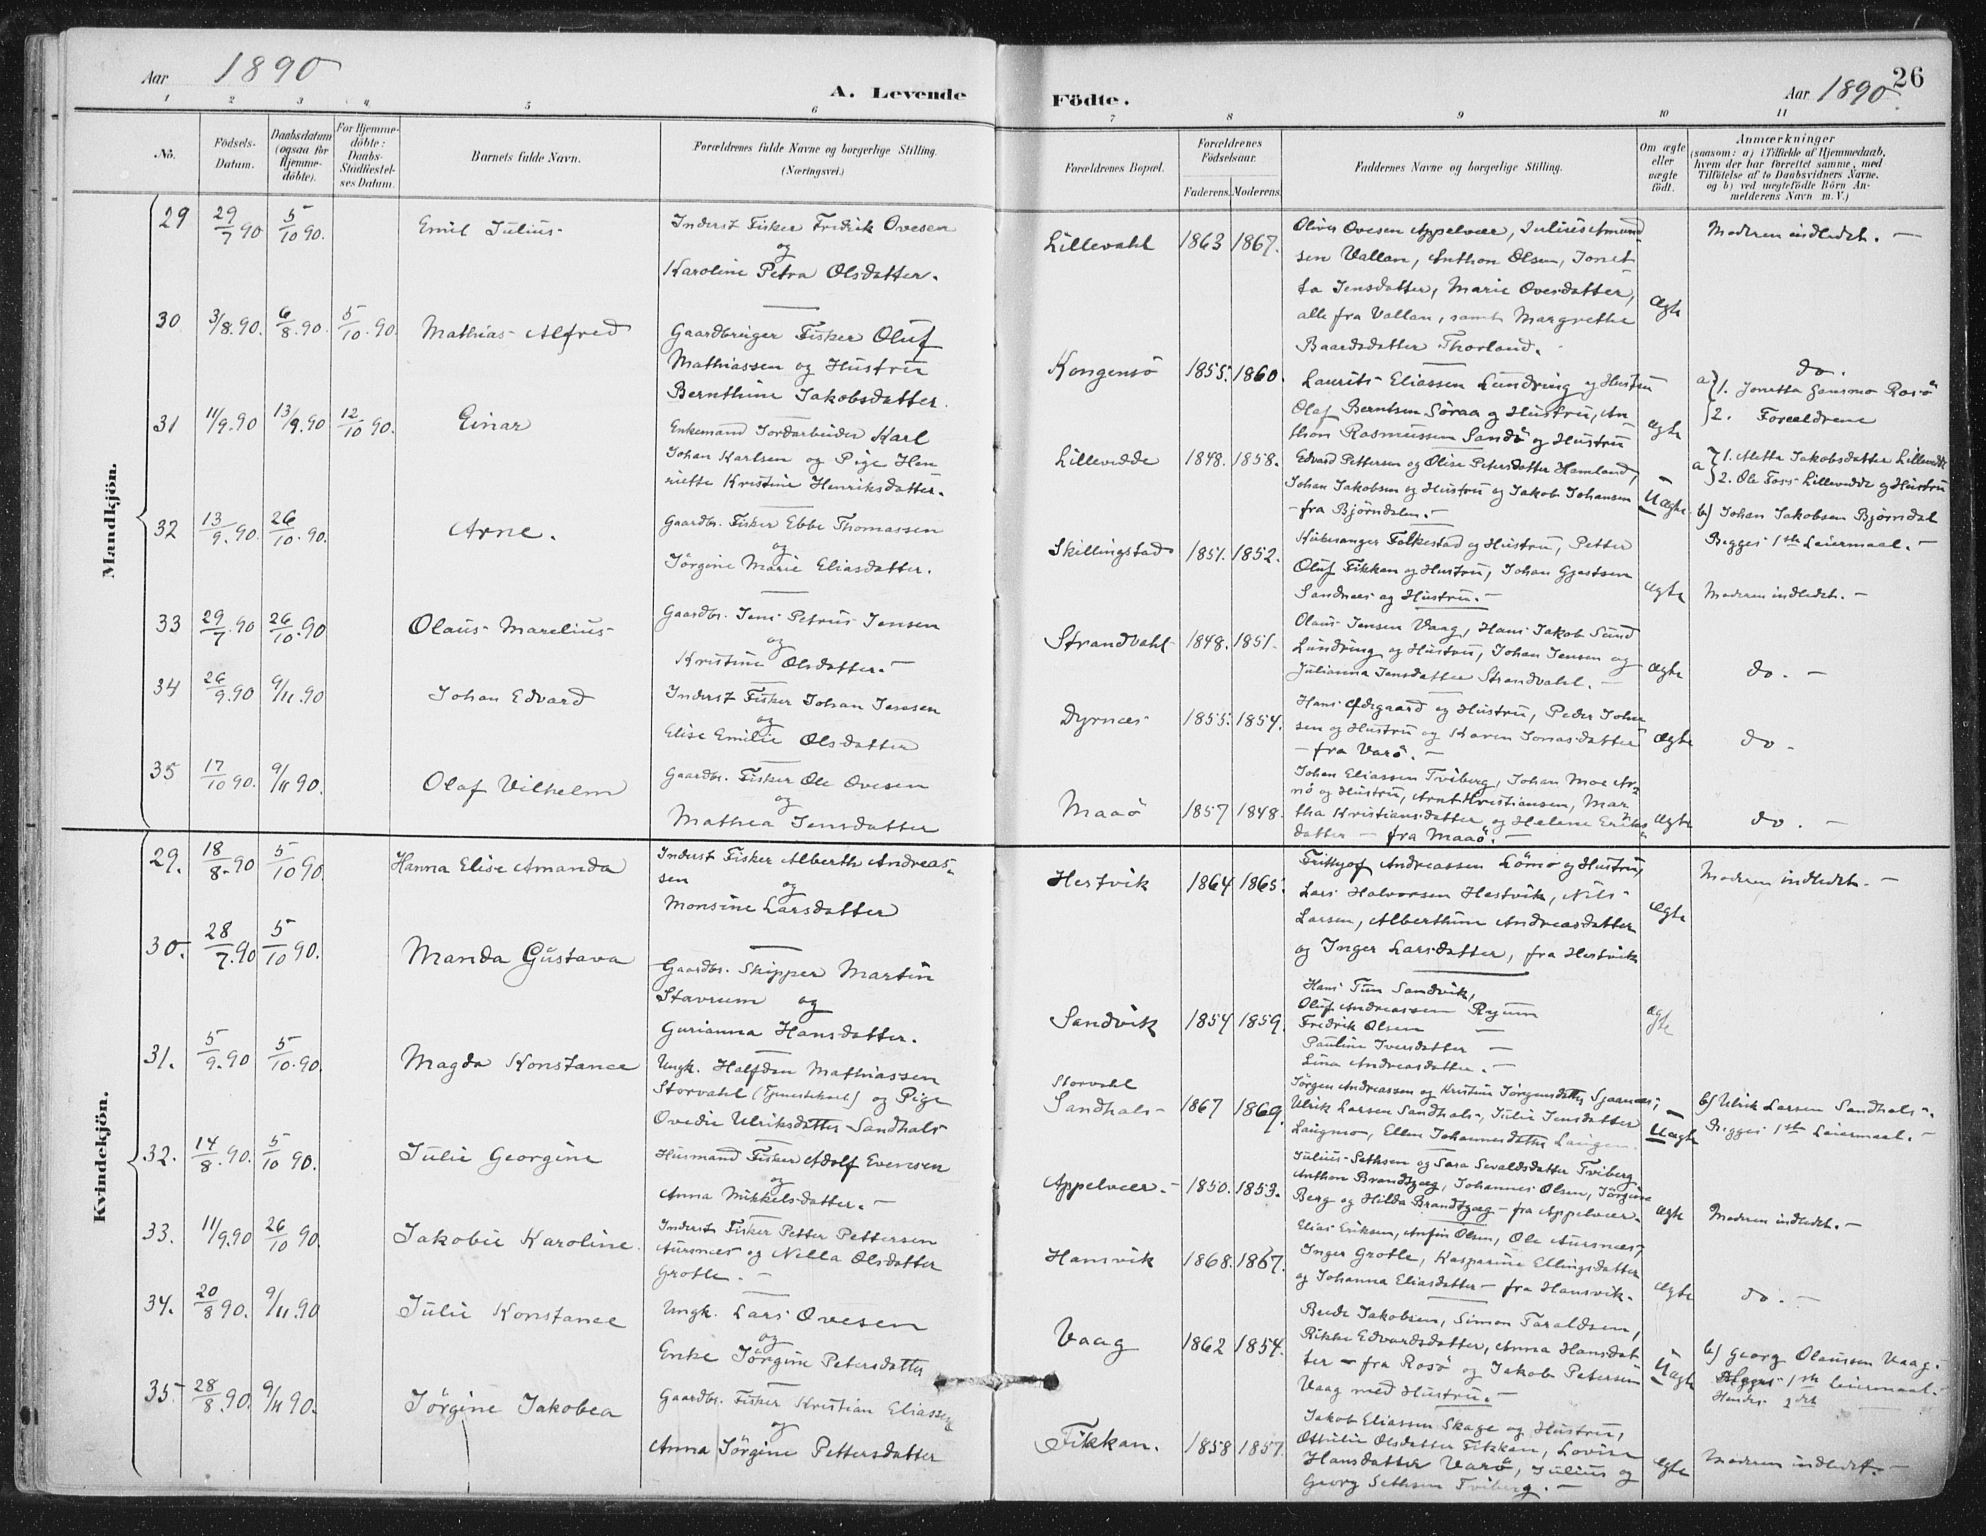 Aar 1890
A. Levende
1 2 3 4 5 6
No.
Födsels-Datum.
Daabsdatum (ogsaa for Hjemme-döbte).
For Hjemme-döbte: Daabs-Stadfæstel-ses Datum.
Barnets fulde Navn.
Forældrenes fulde Navne og borgerlige Stilling.
(Næringsvei.)
Mandkjön.
29 29/7 90 5/10 90. Emil Julius Inderst Fisker Fredrik Ovesen
og
Karoline Petra Olsdatter.
30 3/8. 90. 6/8. 90. 5/10. 90. Mathias Alfred Gaardbruger Fisker Oluf
Mathiassen og Hustru
Bernthine Jakobsdatter.
31 11/9. 90 13/9. 90 12/10 90. Einar Enkemand Jordarbeider Karl
Johan Karlsen og Pige Hen
riette Kristine Henriksdatter.
32 13/9. 90. 26/10. 90. Arne. Gaardbr. Fisker Ebbe Thomassen
og
Jörgine Marie Eliasdatter.
33 29/7. 90 26/10. 90 Olaus Marelius Gaardbr. Jens Petrus Jensen
og
Kristine Olsdatter. —
34 26/9. 90 9/11. 90 Johan Edvard Inderst Fisker Johan Jensen
og
Elise Emilie Olsdatter
35 17/10 90. 9/11 90. Olaf Vilhelm Gaardbr. Fisker Ole Ovesen
og
Mathea Jensdatter
Kvindekjön.
29. 18/8. 90 5/10 90. Hanna Elise Amanda Inderst Fisker Alberth Andreas-
sen
og
Monsine Larsdatter
30. 28/7. 90 5/10 90. Manda Gustava Gaardbr. Skipper Martin
Stavrum og
Gurianna Hansdatter.
31. 5/9. 90 5/10. 90. Magda Konstance Ungk. Halfdan Mathiassen
Storvahl (Tjenestekarl) og Pige
Ovedie Ulriksdatter Sandhals
32. 14/8. 90. 5/10 90. Julie Georgine Husmand Fisker Adolf Evensen
og
Anna Mikkelsdatter. —
33. 11/9. 90 26/10 90. Jakobie Karoline. Inderst Fisker Petter Pettersen
Aursnes og Nella Olsdatter
Grotle. —
34. 20/8 90. 9/11. 90 Julie Konstance Ungk. Lars Ovesen
og
Enke Jörgine Petersdatter
35 28/8 90. 9/11 90. Jörgine Jakobea Gaardbr. Fisker Kristian Eliassen
og
Anna Jörgine Pettersdatter
Födte.
Aar 1890.
26
7 8 9 10 11
Forældrenes Bopæl.
Forældrenes Födselsaar.
Faderens. Moderens.
Faddernes Navne og borgerlige Stilling.
Om ægte eller uægte födt.
Anmærkninger
(saasom: a) i Tilfælde af Hjemmedaab, hvem der har forrettet samme, med Tilföielse af to Daabsvidners Navne, og b) ved uægtefödte Börn An-melderens Navn m. V.)
Lillevahl 1863 1867. Oliver Ovesen Appelvær, Julius Amund
sen Vallan, Anthon Olsen, Jonet
ta Jensdatter, Marie Ovesdatter,
alle fra Vallan, samt Margrethe
Baardsdatter Thorland.
Ægte
Moderen indledet. —
Kongensö 1855. 1860. Laurits Eliassen Lundring og Hustru
Olaf Berntsen Söraa og Hustru, An
thon Rasmussen Sandö og Hustru
Ægte
do.
a) 1. Jonetta Rosö
2. Forældrene
Lillevedde 1848. 1858. Edvard Pettersen og Olise Petersdatter Hamland,
Johan Jakobsen og Hustru og Jakob Johansen
— fra Björndalen. —
Uægte
a) 1. Mette Jakobsdatter Lillevedde
2. Ole Foss Lillevedde og Hustru
b) Johan Jakobsen Björndal
Begges 1ste Leiermaal. —
Skillingstad 1851. 1852. Kirkesanger Folkestad og Hustru, Petter
Oluf Fikkan og Hustru, Johan Gjertsen
Sandnes og Hustru. —
Ægte
Moderen indledet. —
Strandvahl 1848. 1851. Olaus Jensen Vaag, Hans Jakob Sund
Lundring og Hustru, Johan Jensen og
Julianna Jensdatter Strandvahl. —
Ægte
do. —
Dyrnes 1855. 1854. Hans Ödegaard og Hustru, Peder Johan
sen og Hustru og Karen Jonasdatter
— fra Varö. —
Ægte
do —
Maaö 1857 1848. Johan Eliassen Tviberg, Johan Moe Ar
nö og Hustru, Arnt Kristiansen, Mar
tha Kristiansdatter og Helene Eriks
datter — fra Maaö. —
Ægte
do. —
Hestvik 1864 1865. Frithjof Andreassen Lömo og Hustru,
Lars Halvorsen Hestvik, Nils
Larsen, Alberthine Andreasdatter
og Inger Larsdatter, fra Hestvik
Ægte
Moderen indledet. —
Sandvik 1854 1859. Hans Tun Sandvik,
Oluf Andreassen Ryum
Fredrik Olsen —
Pauline Iversdatter —
Lina Andreasdatter. —
Ægte
Storvahl
Sandhals 1867 1869. Jörgen Andreassen og Kristine Jörgensdatter Sjaanes,
Ulrik Larsen Sandhals, Julie Jensdatter
Langmo, Ellen Johannesdatter Laugen
Uægte
b) Ulrik Larsen Sandhals.
Begges 1ste Leiermaal. —
Appelvær. — 1850. 1853. Julius Sethsen og Sara Sevaldsdatter Tviberg
Anthon Brandtzæg, Johannes Olsen, Jörgine
Berg og Hilda Brandtzæg — fra Appelvær.
Ægte
Moderen indledet. —
Hansvik 1868. 1867. Elias Eriksen, Anfin Olsen, Ole Aursnes,
Inger Grotle, Kasparine Ellingsdatter
og Johanna Eliasdatter — fra Hansvik.
Ægte
do. —
Vaag 1862 1854. Berde Jakobsen, Simon Taraldsen,
Rikke Edvardsdatter, Anna Hansdat
ter — fra Rosö og Jakob Petersen
Vaag med Hustru. —
Uægte
b) Georg Olaussen Vaag.
1ste Leiermaal.
Hendes 2det
Fikkan. 1858 1857. Jakob Eliassen Skage og Hustru,
Ottilie Olsdatter Fikkan, Lovise
Hansdatter Varö, Julius og
Georg Sethsen Tviberg. —
Ægte
Moderen indledet. —